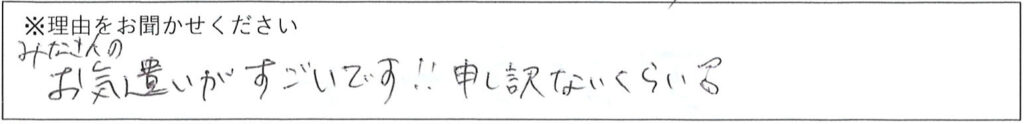 ※理由をお聞かせください
みなさんの
お気遣いがすごいです!!申し訳ないくらい